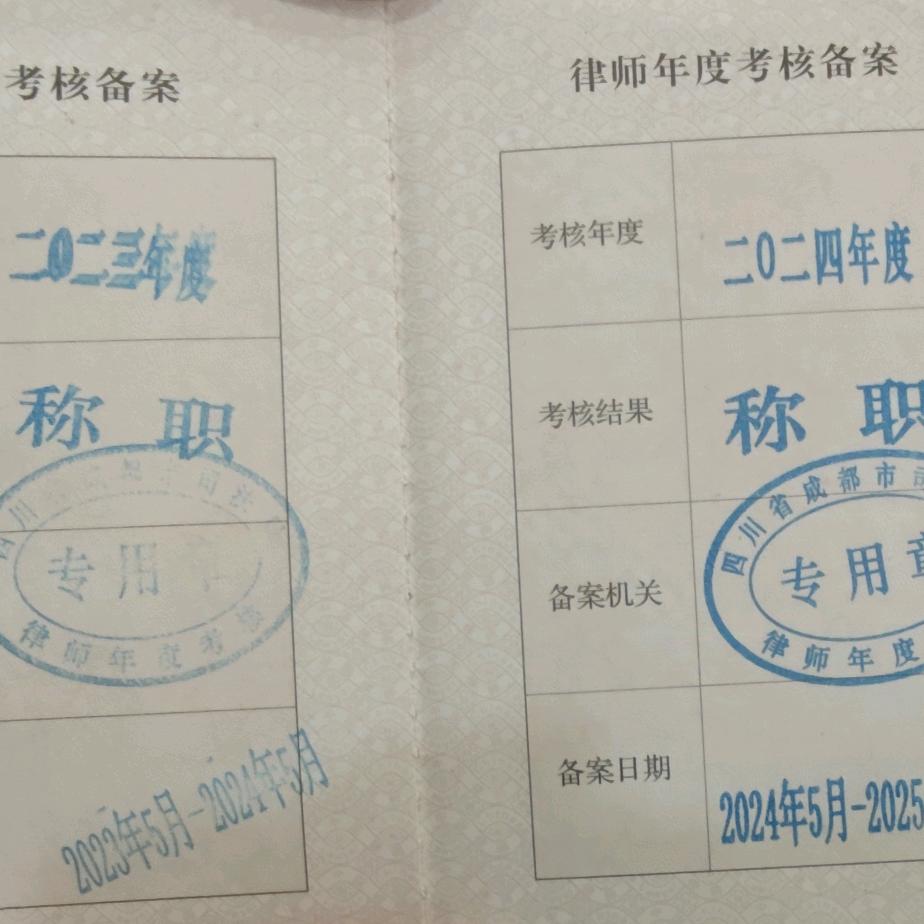 考核备案
二〇二三年度
称职
专用
律师年度考核
2023年5月-2024年5月
律师年度考核备案
考核年度
二〇二四年度
考核结果
称职
四川省成都市司
备案机关
专用章
律师年度
备案日期
2024年5月-2025